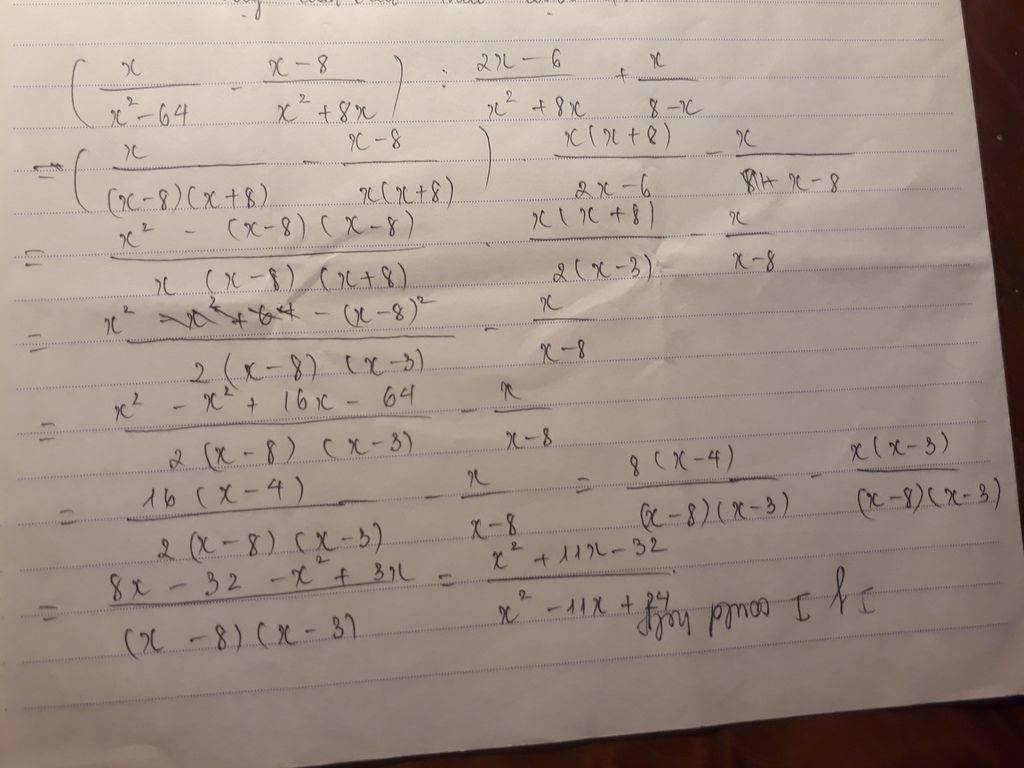 ( x / (x² - 64) - (x - 8) / (x² + 8x) ) : (2x - 6) / (x² + 8x) + x / (8 - x)
= ( x / ((x-8)(x+8)) - (x-8) / (x(x+8)) ) · x(x+8) / (2x-6) - x / (x-8)
= (x² - (x-8)(x-8)) / (x (x-8) (x+8)) · x(x+8) / (2(x-3)) - x / (x-8)
= (x² - (x-8)²) / (2(x-8) (x-3)) - x / (x-8)
= (x² - x² + 16x - 64) / (2(x-8) (x-3)) - x / (x-8)
= 16(x-4) / (2(x-8) (x-3)) - x / (x-8) = 8(x-4) / ((x-8)(x-3)) - x(x-3) / ((x-8)(x-3))
= (8x - 32 - x² + 3x) / ((x-8)(x-3)) = (x² + 11x - 32) / (x² - 11x + 24)
If I could